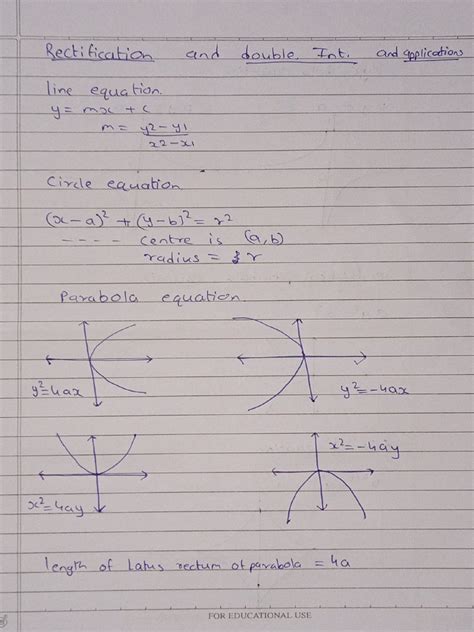 Rectification and double Int. and applications
line equation
y = mx + c
m = y2 - y1
x2 - x1
Circle equation
(x-a)² + (y-b)² = r²
---- centre is (a,b)
radius = r
Parabola equation
y²=4ax
y²=-4ax
x²=-4ay
x²=4ay
length of Latus rectum of parabola = 4a
FOR EDUCATIONAL USE